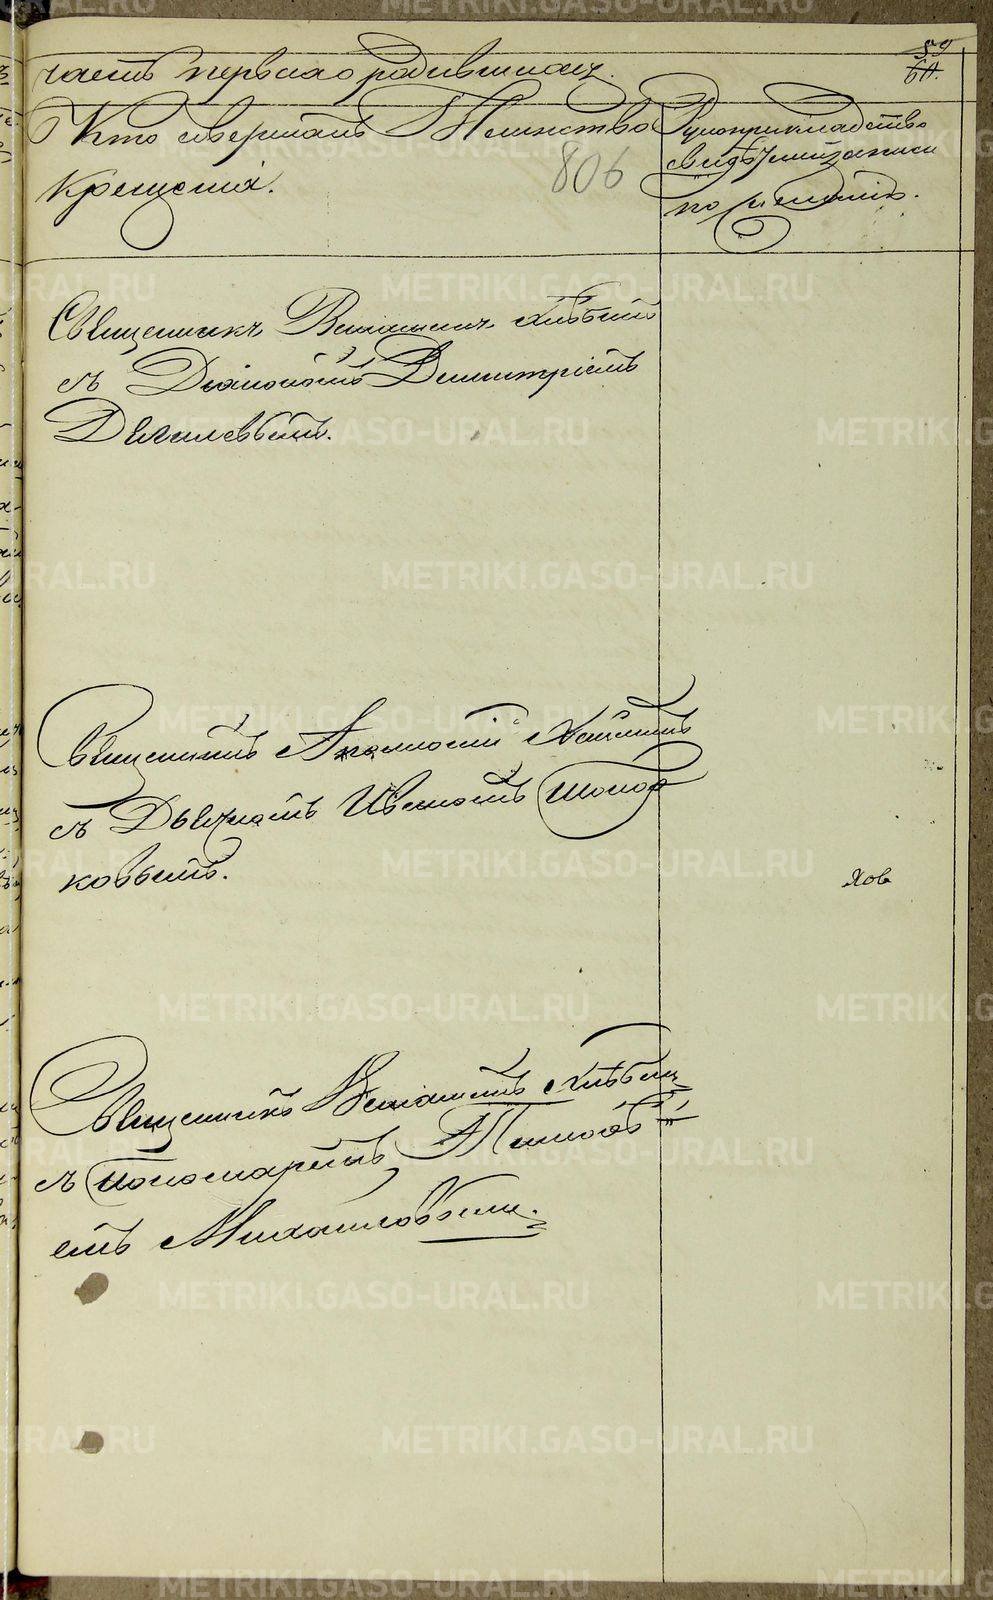 59
60.
часть первая о родившихся.
Кто совершалъ Таинство
крещенія.
806
Рукоприкладство
свидѣтелей записи
по желанію.
Священникъ Веніаминъ Хлѣбинъ
съ Діакономъ Димитріемъ
Священникъ Аполлоній
съ Дьячкомъ Иваномъ Топор
ковымъ.
ков
Священникъ Веніаминъ Хлѣбин
съ Пономаремъ Тимоѳѣ
емъ Михайловымъ.
METRIKI.GASO-URAL.RU